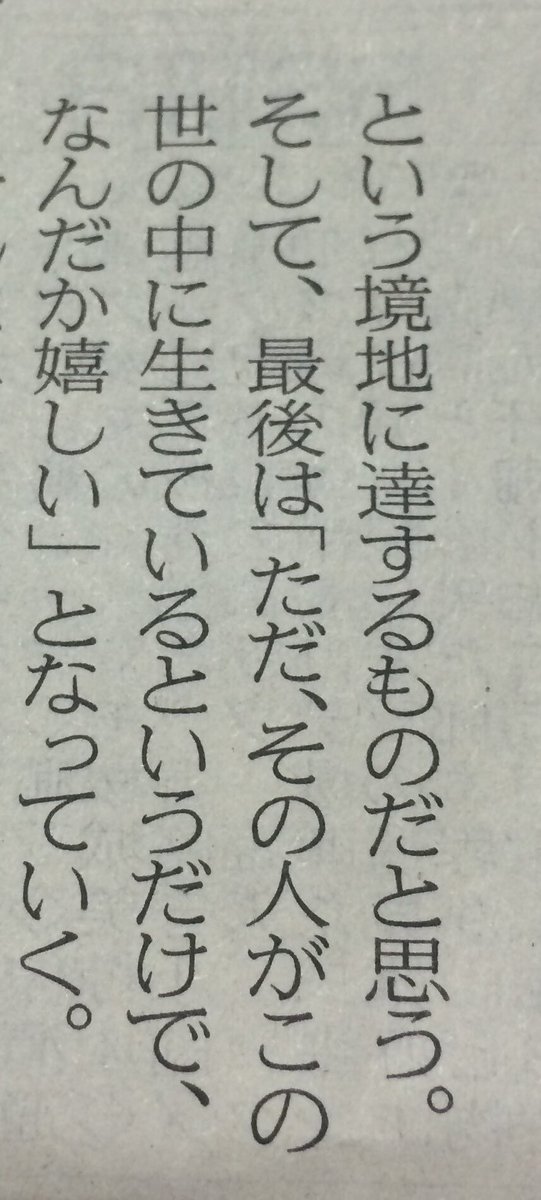 という境地に達するものだと思う。
そして、最後は「ただ、その人がこの
世の中に生きているというだけで、
なんだか嬉しい」となっていく。